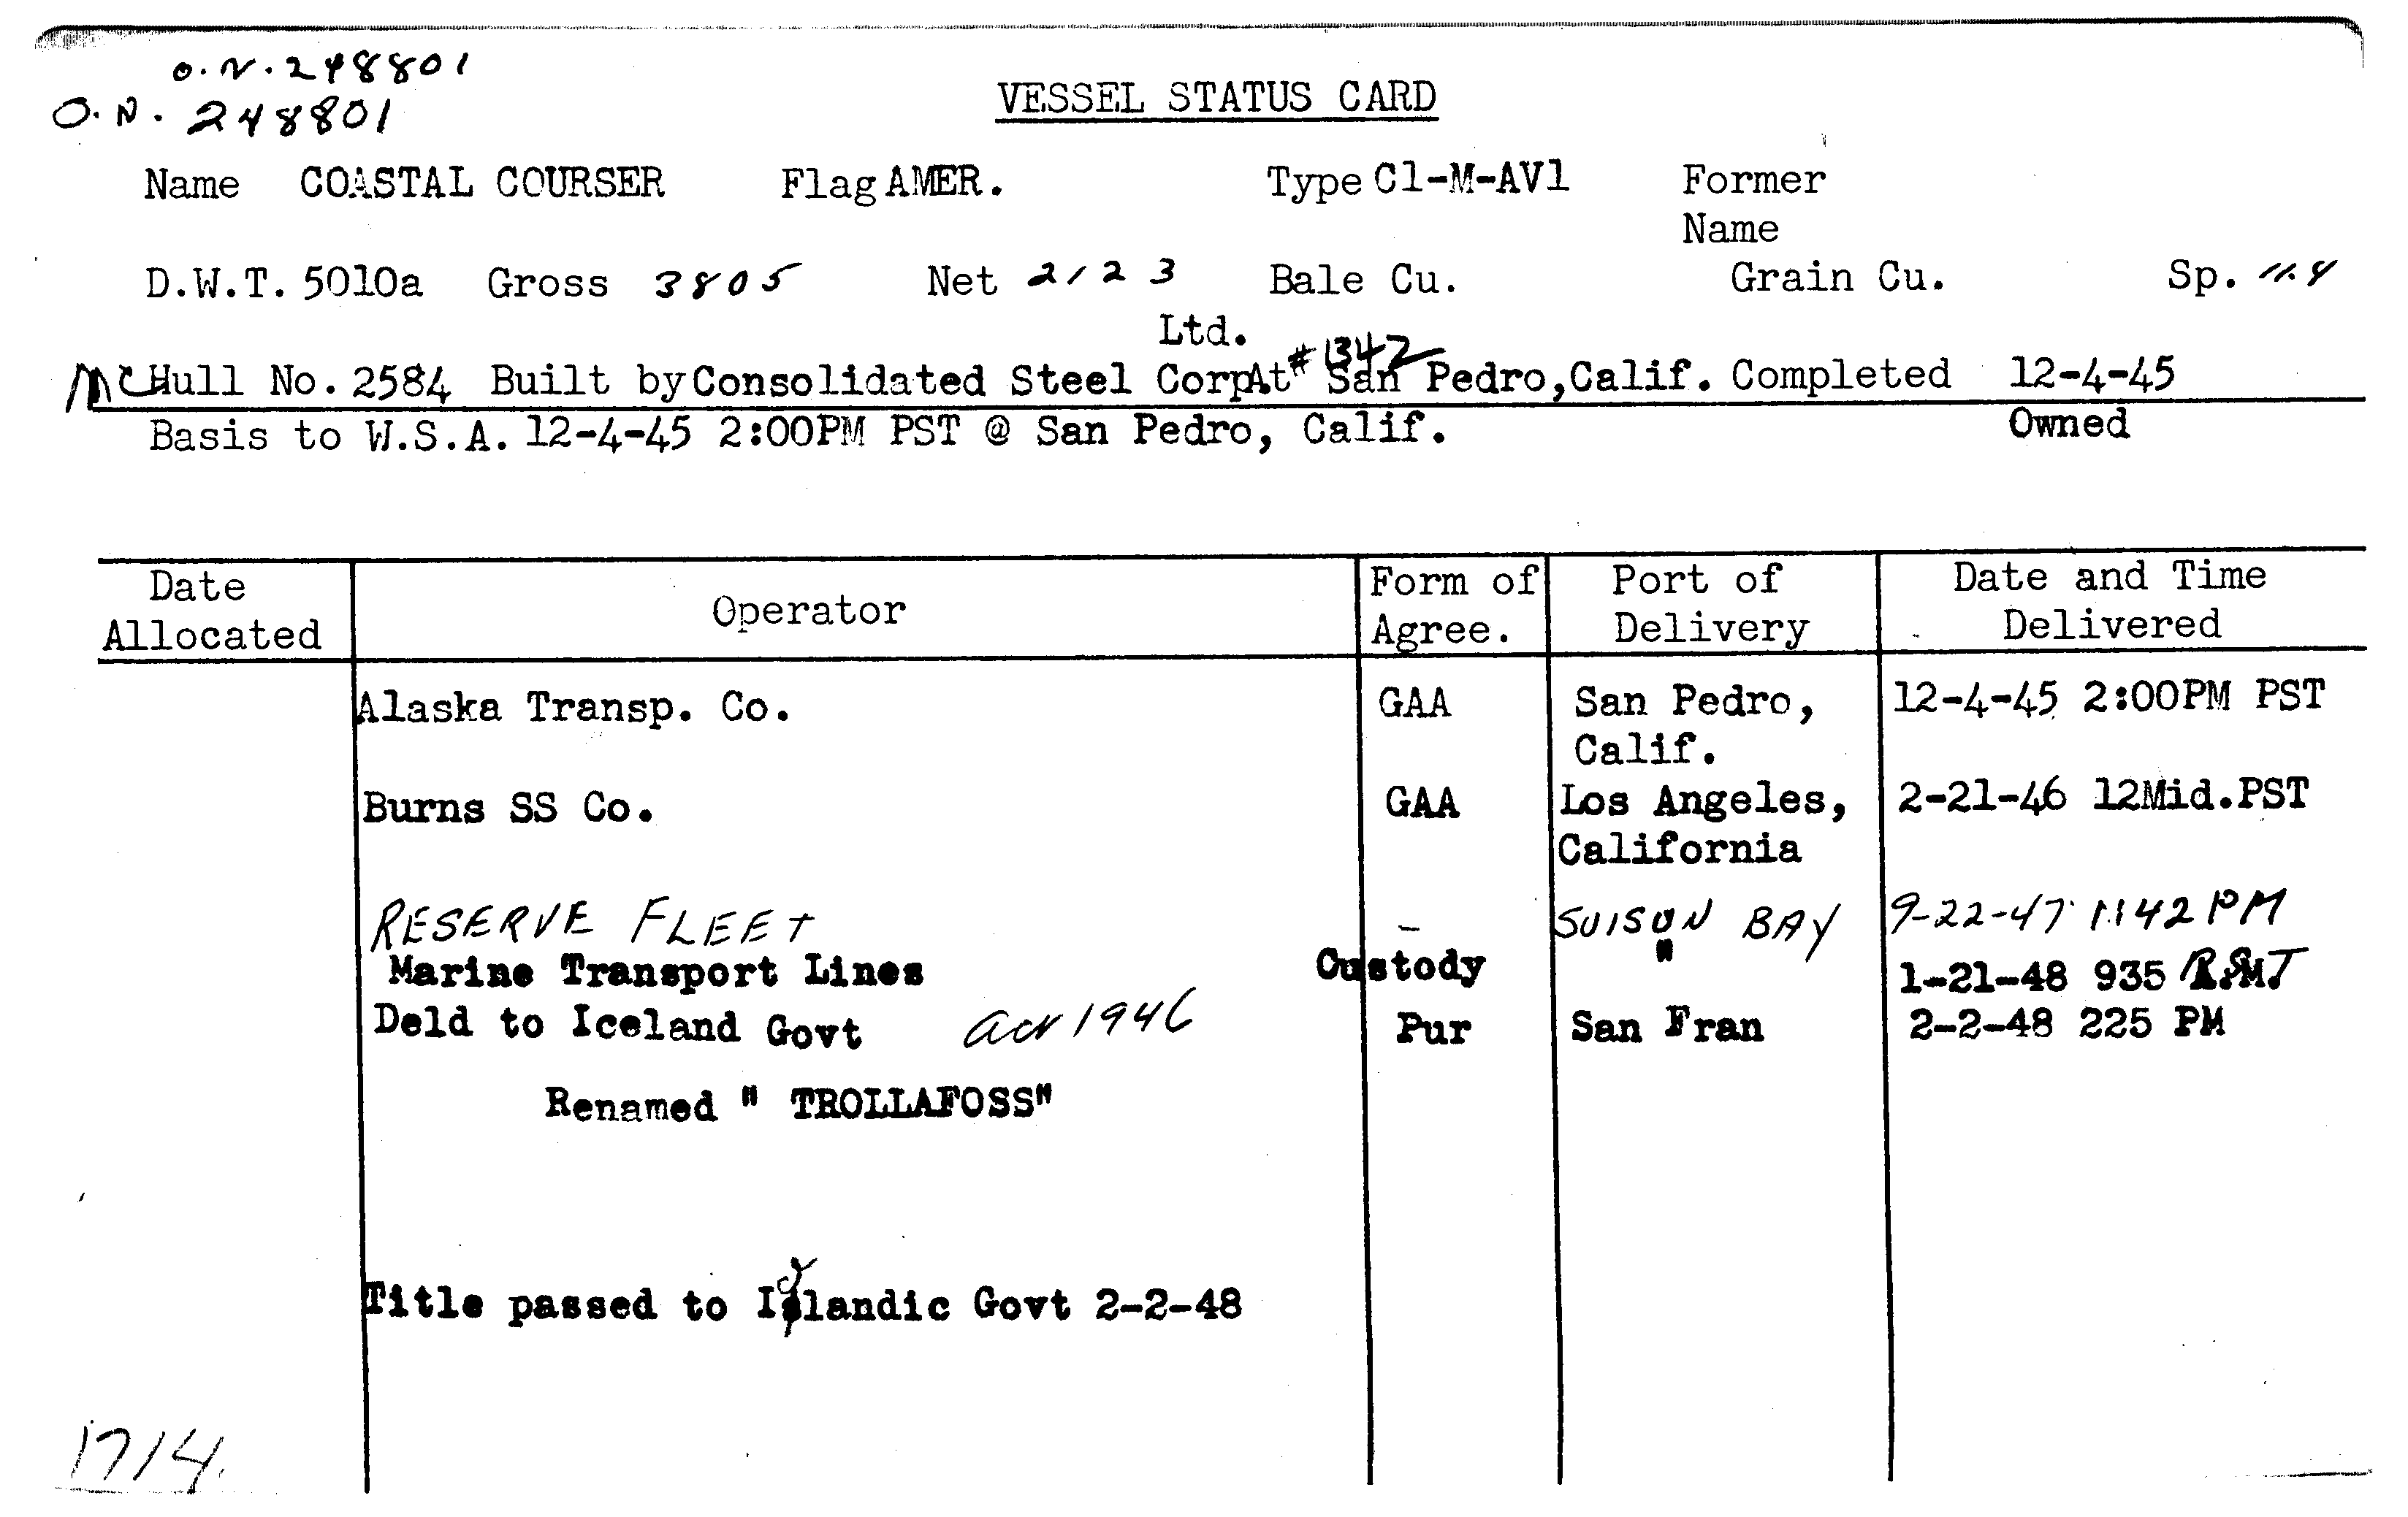 O.N. 248801
O.N. 248801
VESSEL STATUS CARD
Name COASTAL COURSER Flag AMER. Type C1-M-AV1 Former
Name
D.W.T. 5010a Gross 3805 Net 2123 Bale Cu. Grain Cu. Sp. 11.4
Ltd.
#1342
MC Hull No. 2584 Built by Consolidated Steel Corp At San Pedro, Calif. Completed 12-4-45
Basis to W.S.A. 12-4-45 2:00PM PST @ San Pedro, Calif. Owned
Date Form of Port of Date and Time
Allocated Operator Agree. Delivery Delivered
Alaska Transp. Co. GAA San Pedro, 12-4-45 2:00PM PST
Calif.
Burns SS Co. GAA Los Angeles, 2-21-46 12Mid.PST
California
RESERVE FLEET - SUISUN BAY 9-22-47 1:42 PM
Marine Transport Lines Custody " 1-21-48 935
Deld to Iceland Govt act 1946 Pur San Fran 2-2-48 225 PM
Renamed " TROLLAFOSS"
Title passed to Icelandic Govt 2-2-48
1714.